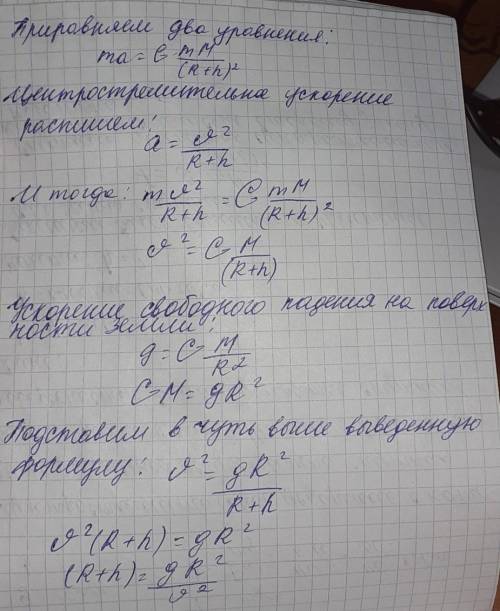 Приравняем два уравнения:
ma = G mM/(R+h)²
Центростремительна ускорение
распишем:
a = v²/R+h
И тогда: mv²/R+h = G mM/(R+h)²
v² = G M/(R+h)
Ускорение свободного падения на поверх
ности Земли:
g = G M/R²
GM = gR²
Подставим в чуть выше выведенную
формулу: v² = gR²/R+h
v²(R+h) = gR²
(R+h) = gR²/v²